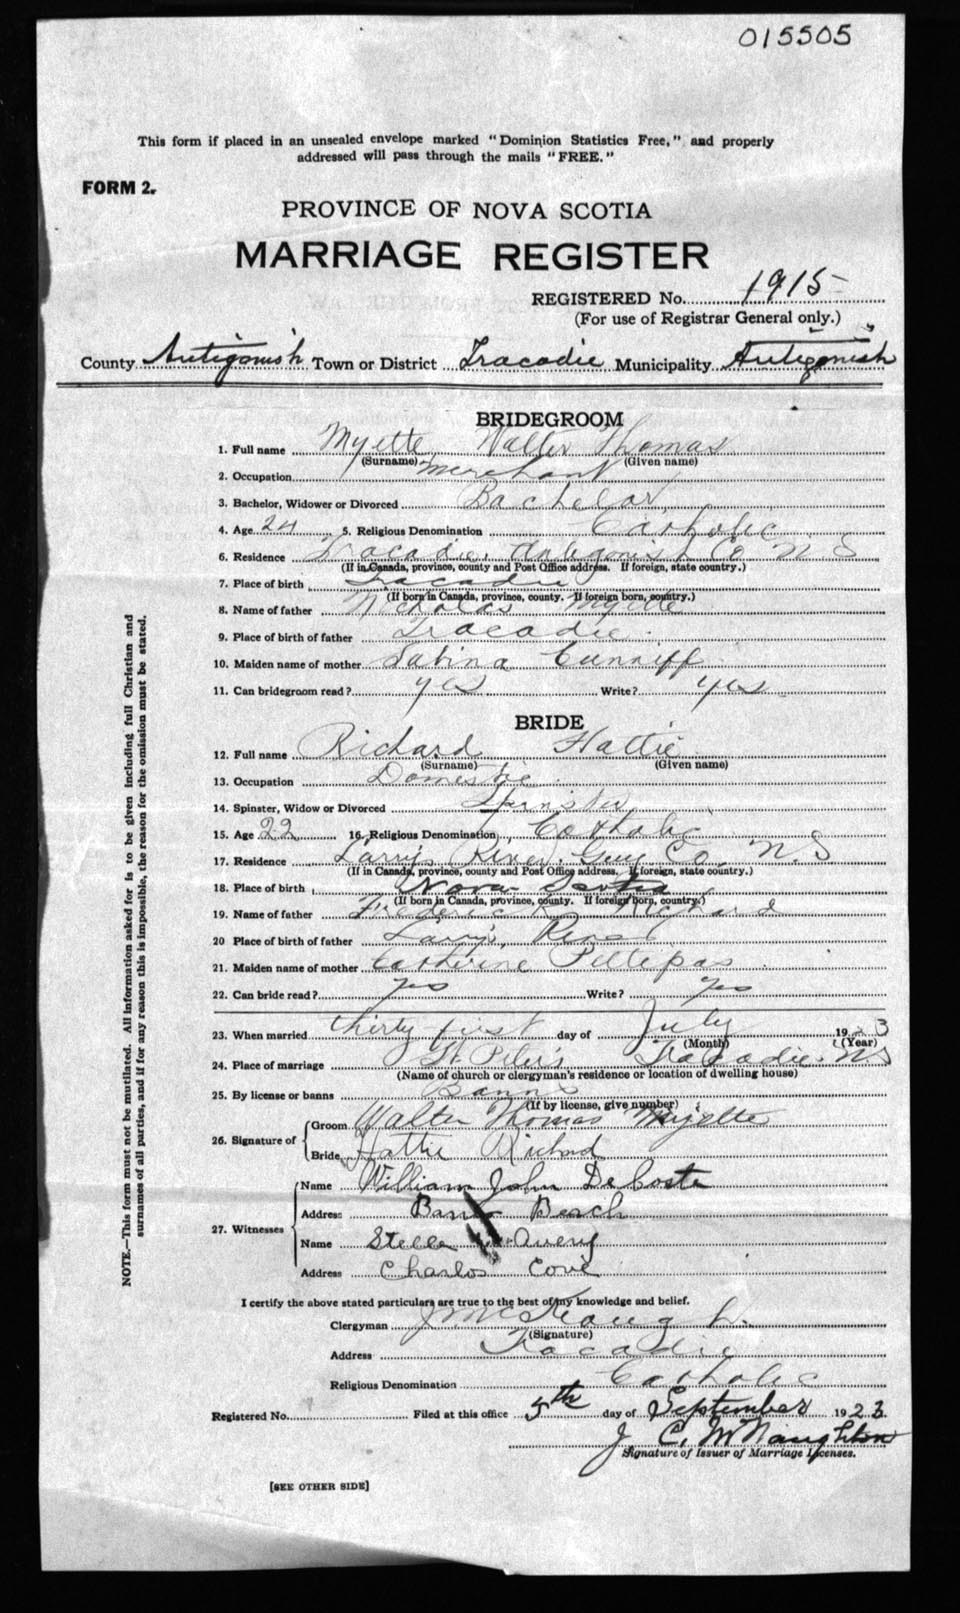 015505
This form if placed in an unsealed envelope marked "Dominion Statistics Free," and properly
addressed will pass through the mails "FREE."
FORM 2.
PROVINCE OF NOVA SCOTIA
MARRIAGE REGISTER
REGISTERED No. 1915
(For use of Registrar General only.)
County Antigonish Town or District Tracadie Municipality Antigonish
BRIDEGROOM
1. Full name Myette Walter Thomas
(Surname) (Given name)
2. Occupation Merchant
3. Bachelor, Widower or Divorced Bachelor
4. Age 24 5. Religious Denomination Catholic
6. Residence Tracadie, Antigonish Co N S
(If in Canada, province, county and Post Office address. If foreign, state country.)
7. Place of birth Tracadie
(If born in Canada, province, county. If foreign born, country.)
8. Name of father Nicholas Myette
9. Place of birth of father Tracadie.
10. Maiden name of mother Sabina Cunniff
11. Can bridegroom read? yes Write? yes
BRIDE
12. Full name Richard Hattie
(Surname) (Given name)
13. Occupation Domestic
14. Spinster, Widow or Divorced Spinster
15. Age 22 16. Religious Denomination Catholic
17. Residence Larry's River, Guy. Co. N. S
(If in Canada, province, county and Post Office address. If foreign, state country.)
18. Place of birth Nova Scotia
(If born in Canada, province, county. If foreign born, country.)
19. Name of father Frederick Richard
20 Place of birth of father Larry's River
21. Maiden name of mother Catherine Pettipas
22. Can bride read? yes Write? yes
23. When married thirty first day of July 1923
(Month) (Year)
24. Place of marriage St. Peter's Tracadie. N S
(Name of church or clergyman's residence or location of dwelling house)
25. By license or banns Banns
(If by license, give number)
26. Signature of Groom Walter Thomas Myette
Bride Hattie Richard
27. Witnesses Name William John DeCoste
Address Beach
Name Stella Avery
Address Charlos Cove
I certify the above stated particulars are true to the best of my knowledge and belief.
Clergyman J McKeough.
(Signature)
Address Tracadie
Religious Denomination Catholic
Registered No. Filed at this office 5th day of September 1923.
J. C. McNaughton
Signature of Issuer of Marriage Licenses.
[SEE OTHER SIDE]
NOTE.—This form must not be mutilated. All information asked for is to be given including full Christian and
surnames of all parties, and if for any reason this is impossible, the reason for the omission must be stated.